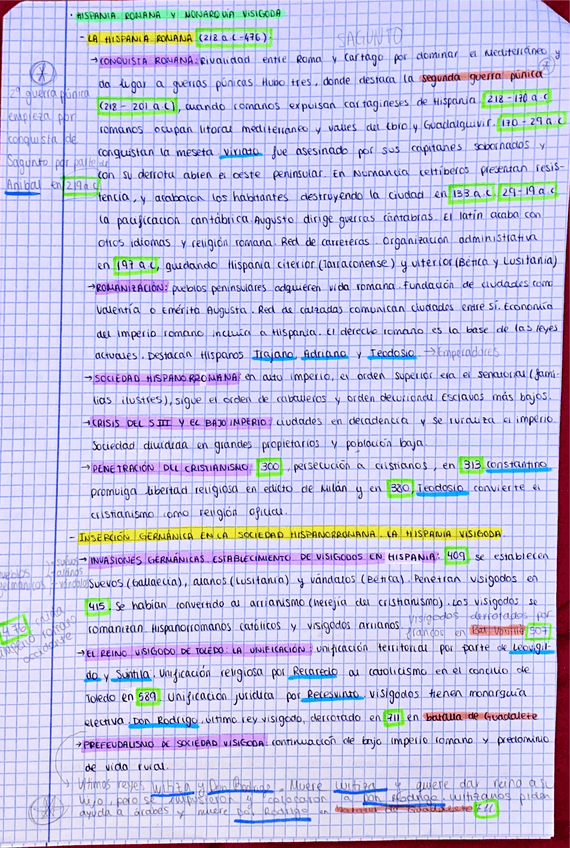 · HISPANIA ROMANA Y MONARQUÍA VISIGODA
- LA HISPANIA ROMANA (218 a.C-476).
SAGUNTO
→CONQUISTA ROMANA: Rivalidad entre Roma y Cartago por dominar el Mediterráneo y
da lugar a guerras púnicas. Hubo tres, donde destaca la segunda guerra púnica
(218-201 a.C), cuando romanos expulsan cartagineses de Hispania. 218-170 a.C
romanos ocupan litoral mediterráneo y valles del Ebro y Guadalquivir. 170-29 a.C
conquistan la meseta. Viriato fue asesinado por sus capitanes sobornados y
con su derrota abren el oeste peninsular. En Numancia celtíberos presentan resis-
tencia, y acabaron los habitantes destruyendo la ciudad en 133 a.C. 29-19 a.C
la pacificación cantábrica. Augusto dirige guerras cántabras. El latín acaba con
otros idiomas y religión romana. Red de carreteras. Organización administrativa
en 197 a.C, quedando Hispania citerior (Tarraconense) y ulterior (Bética y Lusitania)
2ª guerra púnica
empieza por
conquista de
Sagunto por parte de
Aníbal en 219 a.C
→ROMANIZACIÓN: pueblos peninsulares adquieren vida romana. Fundación de ciudades como
Valentia o Emérita Augusta. Red de calzadas comunican ciudades entre sí. Economía
del imperio romano incluía a Hispania. El derecho romano es la base de las leyes
actuales. Destacan Hispanos Trajano, Adriano y Teodosio →Emperadores
→SOCIEDAD HISPANORROMANA: en alto imperio, el orden superior era el senatorial (fami-
lias ilustres), sigue el orden de caballeros y orden decurional. Esclavos más bajos.
→CRISIS DEL S.III Y EL BAJO IMPERIO: ciudades en decadencia y se ruraliza el imperio.
Sociedad dividida en grandes propietarios y población baja.
→PENETRACIÓN DEL CRISTIANISMO: 300, persecución a cristianos, en 313 Constantino
promulga libertad religiosa en edicto de Milán y en 380 Teodosio convierte el
cristianismo como religión oficial.
- INSERCIÓN GERMÁNICA EN LA SOCIEDAD HISPANORROMANA. LA HISPANIA VISIGODA.
→INVASIONES GERMÁNICAS. ESTABLECIMIENTO DE VISIGODOS EN HISPANIA: 409 se establecen
suevos (Gallaecia), alanos (Lusitania) y vándalos (Bética). Penetran visigodos en
415. Se habían convertido al arrianismo (herejía del cristianismo). Los visigodos se
romanizan. Hispanorromanos católicos y visigodos arrianos. visigodos derrotados por
francos en 507
pueblos suevos
germánicos alanos
vándalos
476 caída
imperio romano
occidente
→EL REINO VISIGODO DE TOLEDO. LA UNIFICACIÓN: unificación territorial por parte de Leovigil-
do y Suintila. Unificación religiosa por Recaredo al catolicismo en el concilio de
Toledo en 589. Unificación jurídica por Recesvinto. Visigodos tienen monarquía
electiva. Don Rodrigo, último rey visigodo, derrotado en 711 en batalla de Guadalete
→PREFEUDALISMO DE SOCIEDAD VISIGODA: continuación de bajo imperio romano y predominio
de vida rural.
→ Últimos reyes Witiza y Don Rodrigo. Muere Witiza y quiere dar reino a su
hijo, pero se impusieron y colocaron a Don Rodrigo. witizanos piden
ayuda a árabes y muere Don Rodrigo en batalla de Guadalete 711